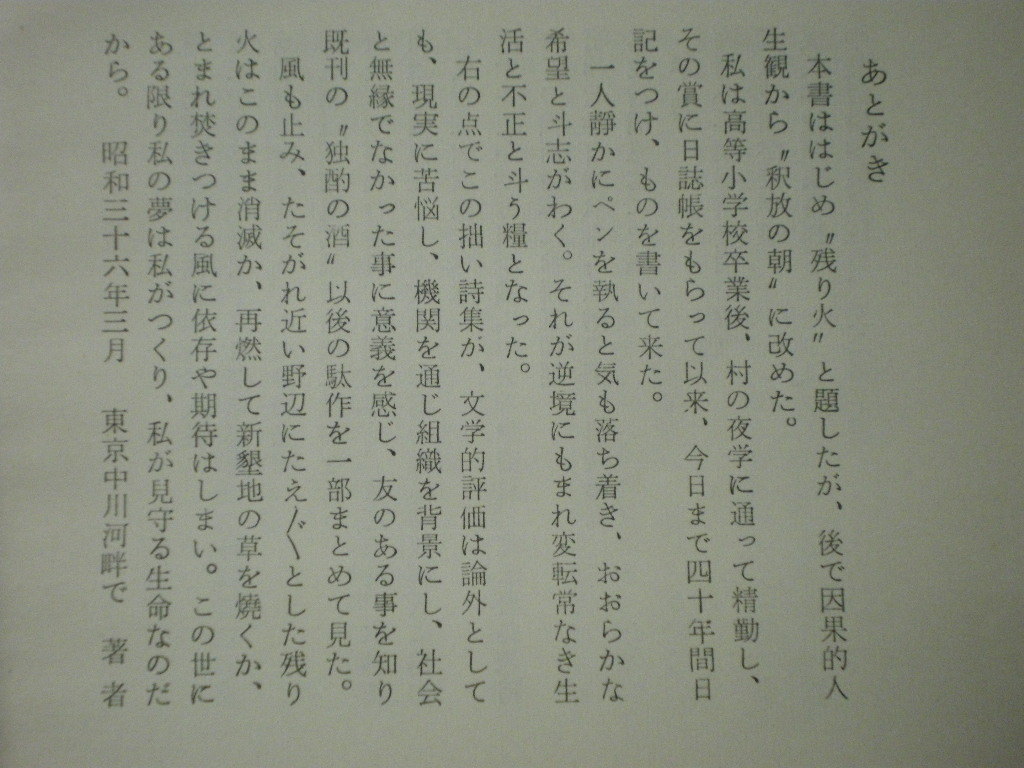 あとがき
本書ははじめ〝残り火〟と題したが、後で因果的人
生観から〝釈放の朝〟に改めた。
私は高等小学校卒業後、村の夜学に通って精勤し、
その賞に日誌帳をもらって以来、今日まで四十年間日
記をつけ、ものを書いて来た。
一人靜かにペンを執ると気も落ち着き、おおらかな
希望と斗志がわく。それが逆境にもまれ変転常なき生
活と不正と斗う糧となった。
右の点でこの拙い詩集が、文学的評価は論外として
も、現実に苦悩し、機関を通じ組織を背景にし、社会
と無縁でなかった事に意義を感じ、友のある事を知り
既刊の〝独酌の酒〟以後の駄作を一部まとめて見た。
風も止み、たそがれ近い野辺にたえ〴〵とした残り
火はこのまま消滅か、再燃して新墾地の草を燒くか、
とまれ焚きつける風に依存や期待はしまい。この世に
ある限り私の夢は私がつくり、私が見守る生命なのだ
から。　昭和三十六年三月　東京中川河畔で　著者